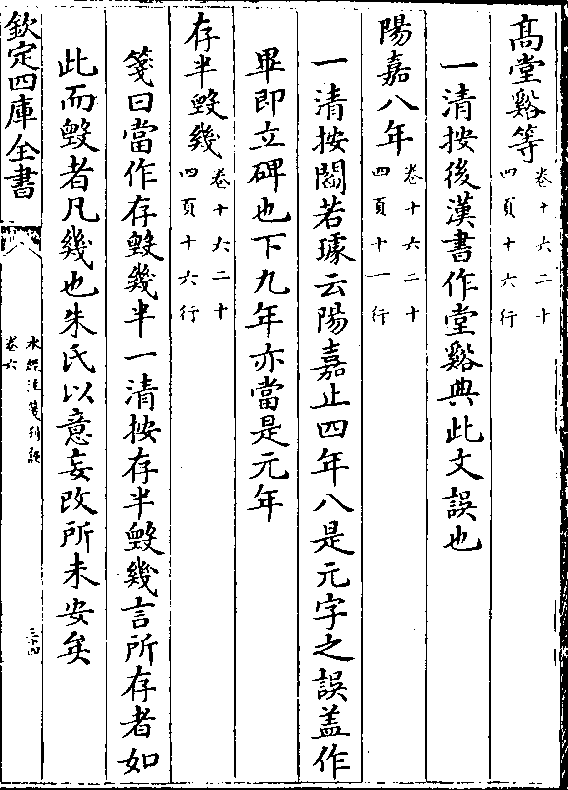 高堂谿等 卷十六二十四頁十六行
一清按後漢書作堂谿典此文誤也
陽嘉八年 卷十六二十四頁十一行
一清按閻若璩云陽嘉止四年八是元字之誤盖作
畢即立碑也下九年亦當是元年
存半毀幾 卷十六二十四頁十六行
箋曰當作存毀幾半一清按存半毀幾言所存者如
此而毀者凡幾也朱氏以意妄改所未安矣
欽定四庫全書
水經注箋刊誤
卷六
三十四